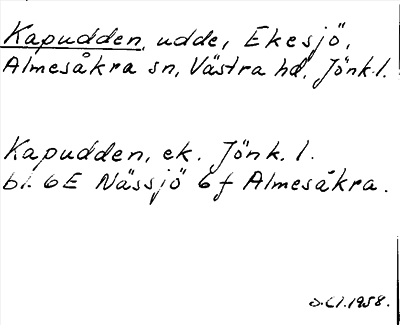 Kapudden, udde, Ekesjö,
Almesåkra sn, Västra hd, Jönk.l.
Kapudden, ek. Jönk. l.
bl. 6E Nässjö 6f Almesåkra.
1958.